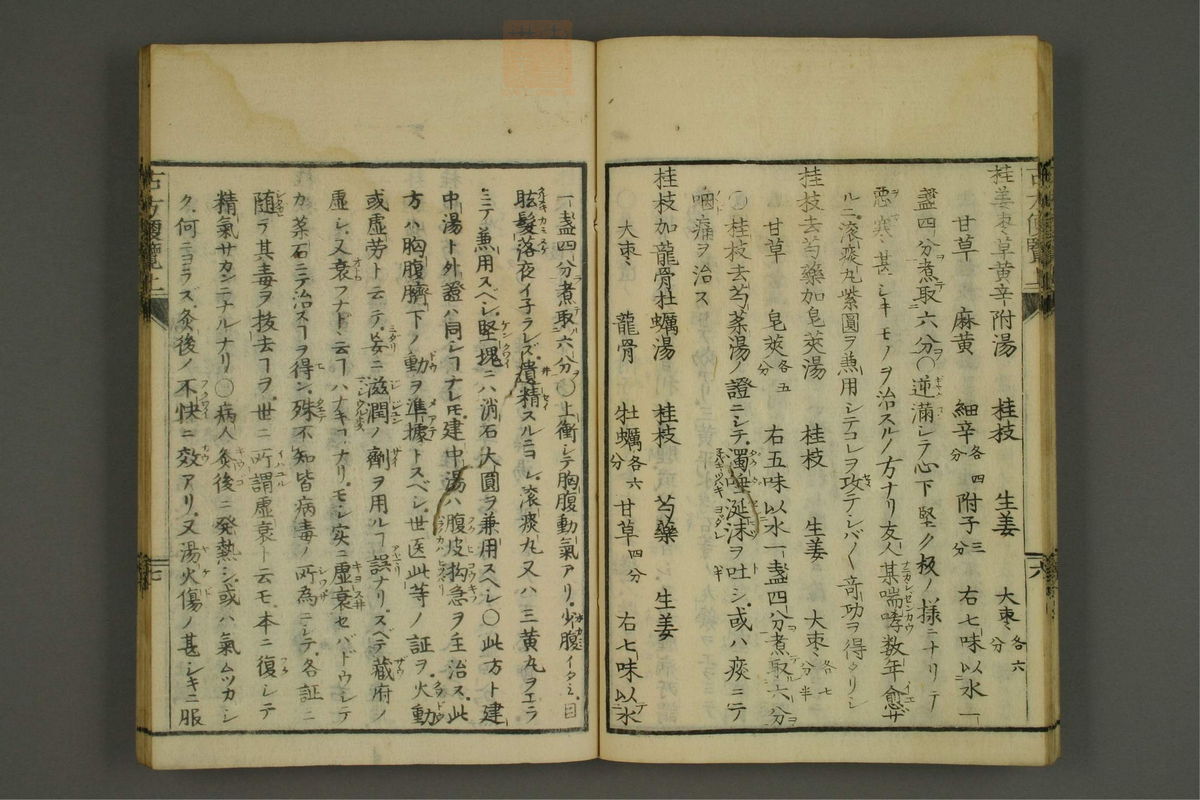 桂姜棗草黄辛附湯　桂枝　生姜　大棗各六分
甘草　麻黄　細辛各四分　附子三分　右七味以水一
盞四分煮取六分○逆滿シテ心下堅ク板ノ様ニナリテ
悪寒甚シキモノヲ治スルノ方ナリ友人某喘哮数年愈ザ
ルニ滚痰丸紫圓ヲ兼用シテコレヲ攻テシバ〱竒功ヲ得タリシ
桂枝去芍藥加皂莢湯　桂枝　生姜　大棗各七分半
甘草　皂莢各五分　右五味以水一盞四分煮取六分
○桂枝去芍薬湯ノ證ニシテ濁唾涎沫ヲ吐シ或ハ痰ニテ
咽痛ヲ治ス
桂枝加龍骨牡蠣湯　桂枝　芍藥　生姜
大棗　龍骨　牡蠣各六分　甘草四分　右七味以水
一盞四分煮取六分○上衝シテ胸腹動氣アリ少腹イタミ目
眩髪落夜イ子ラレズ遺精スルニヨシ滚痰丸又ハ三黄丸ヲエラ
ミテ兼用スベシ堅塊ニハ消石大圓ヲ兼用スヘシ○此方ト建
中湯ト外證ハ同シヿナレ𪜈建中湯ハ腹皮拘急ヲ主治ス此
方ハ胸腹臍下ノ動ヲ準據トスベシ世医此等ノ証ヲ火動
或虚劳ト云テ妄ニ滋潤ノ劑ヲ用ルヿ誤ナリスベテ蔵府ノ
虚シ又衰フナドヽ云ヿハナキヿナリモシ实ニ虚衰セバドウシテ
カ薬石ニテ治スヿヲ得ン殊不知皆病毒ノ所為ニシテ各証ニ
随テ其毒ヲ抜去ヿヲ世ニ所謂虚衰ト云モ本ニ復シテ
精氣サカンニナルナリ○病人灸後ニ発熱シ或ハ氣ムツカシ
ク何ニヨラズ灸後ノ不快ニ效アリ又湯火傷ノ甚シキニ服
古方便覽上
六
古方便覽上
七